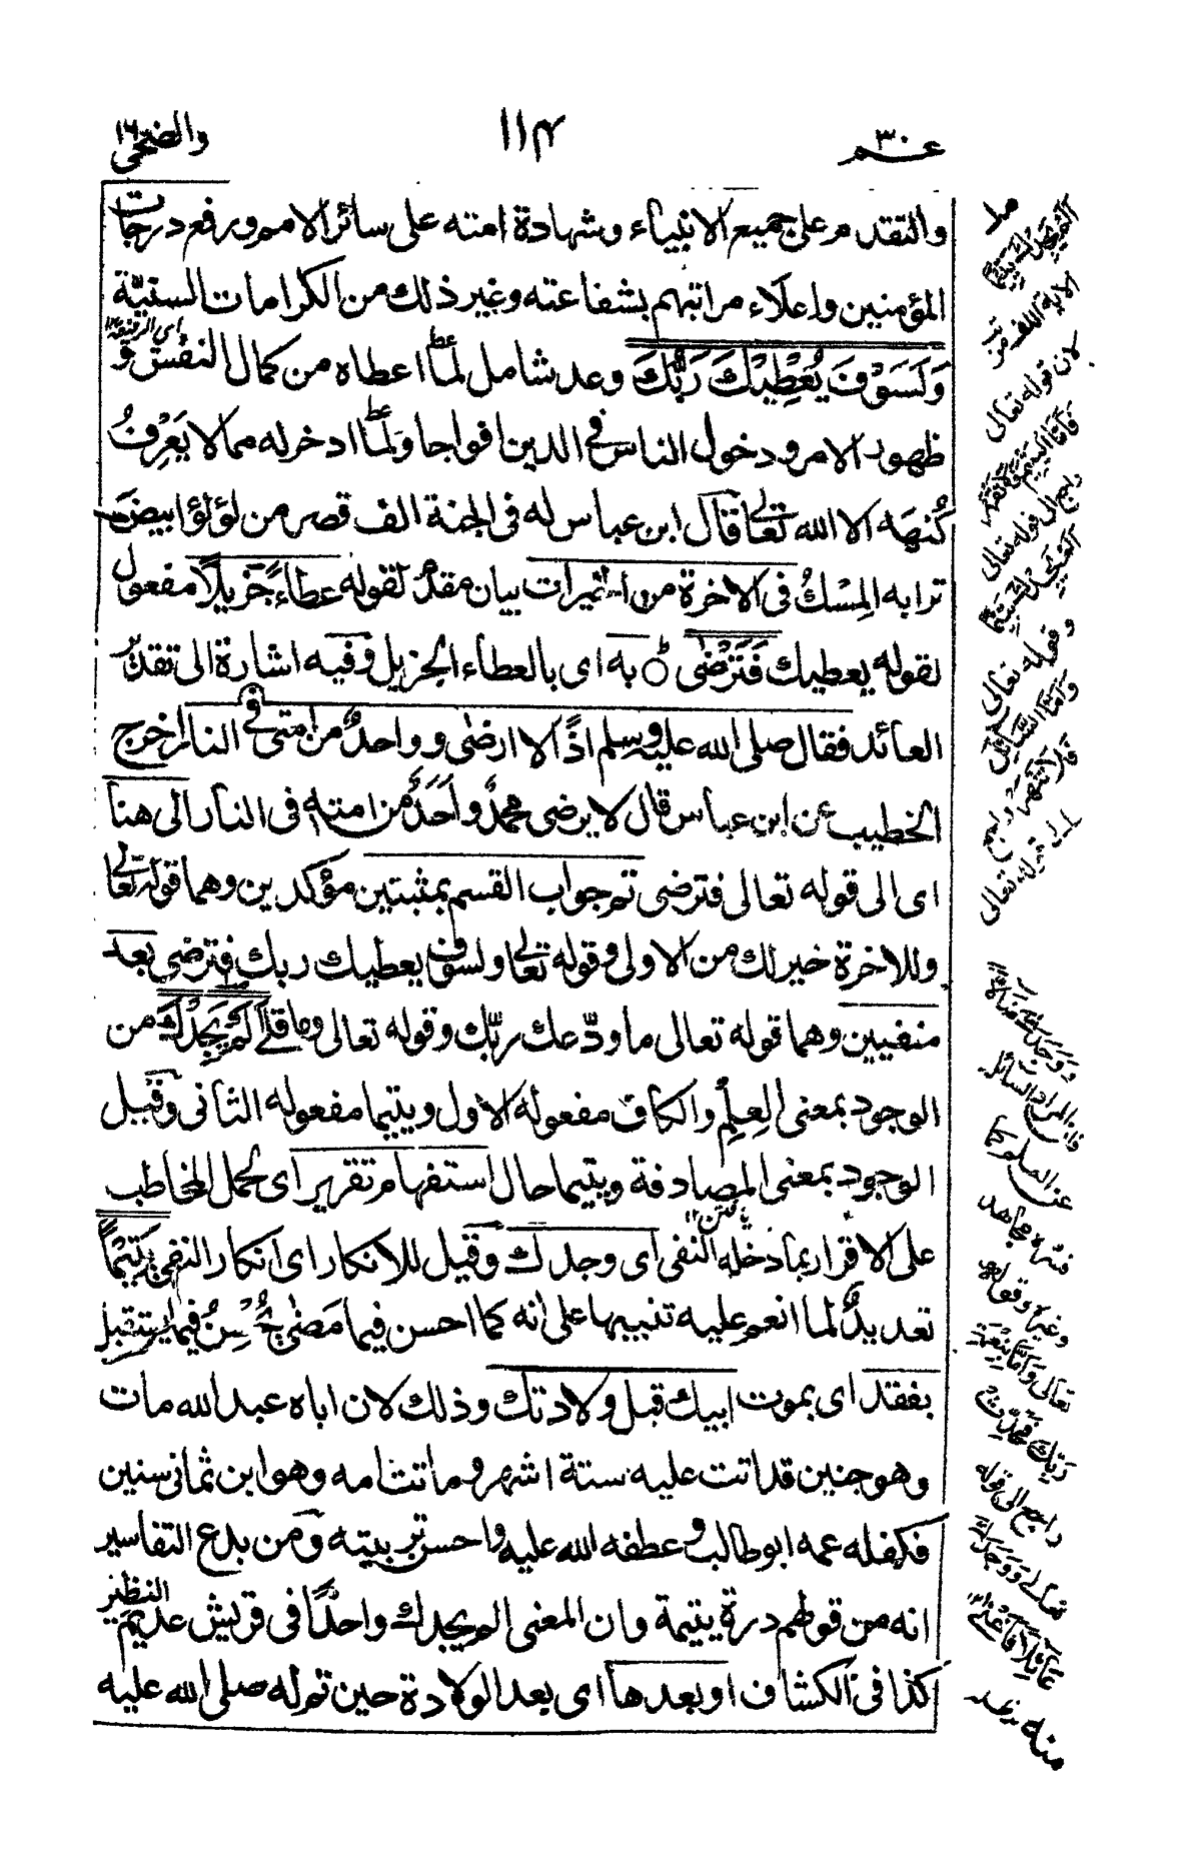 عم ٣٠
١١٣
والضحى
والتقدم على جميع الانبياء وشهادة امته على سائر الامم ورفع درجات
المؤمنين واعلاء مراتبهم بشفاعته وغير ذلك من الكرامات السنيّة
وَلَسَوْفَ يُعْطِيْكَ رَبُّكَ وعد شامل لما اعطاه من كمال النفس و
ظهور الامر ودخول الناس فى الدين افواجا ولما ادخر له مما لا يَعْرِفُ
كُنهَه الا الله تعالى قال ابن عباس له فى الجنة الف قصر من لؤلؤ ابيض
ترابه المِسْكُ فى الاخرة من الخيرات بيان مقدم لقوله عطاءً جزيلاً مفعول
لقوله يعطيك فَتَرْضٰى به اى بالعطاء الجزيل وفيه اشارة الى تقدير
العائد فقال صلى الله عليه وسلم اذًا لا ارضٰى وواحدٌ من امتى فى النار اخرج
الخطيب عن ابن عباس قال لا يرضى محمدٌ واَحَدٌ من امته فى النار الى هنا
اى الى قوله تعالى فترضى تم جواب القسم بمثبتين مؤكدين وهما قوله تعالى
وللاخرة خير لك من الاولى وقوله تعالى ولسوف يعطيك ربك فترضى بعد
منفيين وهما قوله تعالى ما ودّعك ربّك وقوله تعالى وما قلى اَلَمْ يَجِدْكَ من
الوجود بمعنى العِلمِ والكاف مفعوله الاول ويتيما مفعوله الثانى وقيل
الوجود بمعنى المصادفة ويتيما حال استفهام تقرير اى لحمل المخاطب
على الاقرار بما دخله النفى اى وجدك وقيل للانكار اى انكار النفى يَتِيْمًا
تعديدٌ لما انعم عليه تنبيها على انه كما احسن فيما مَضٰى يُحْسِنُ فيما يستقبل
بفقد اى بموت ابيك قبل ولادتك وذلك لان اباه عبد الله مات
وهو جنين قد اتت عليه ستة اشهر وماتت امه وهو ابن ثمانى سنين
فكفله عمه ابو طالب وعطفه الله عليه واحسن تربيته ومن بدع التفاسير
انه من قولهم درة يتيمة وان المعنى الم يجدك واحدًا فى قريش عديم النظير
كذا فى الكشاف او بعدها اى بعد الولادة حين تم له صلى الله عليه
لان قوله تعالى
فَاَمَّا الْيَتِيْمَ فَلَا تَقْهَرْ
راجع الى قوله تعالى
وقوله تعالى
وَاَمَّا السَّائِلَ
فَلَا تَنْهَرْ
تعالى وَاَمَّا بِنِعْمَةِ
رَبِّكَ فَحَدِّثْ
راجع الى قوله
عَائِلًا فَاَغْنٰى
منه